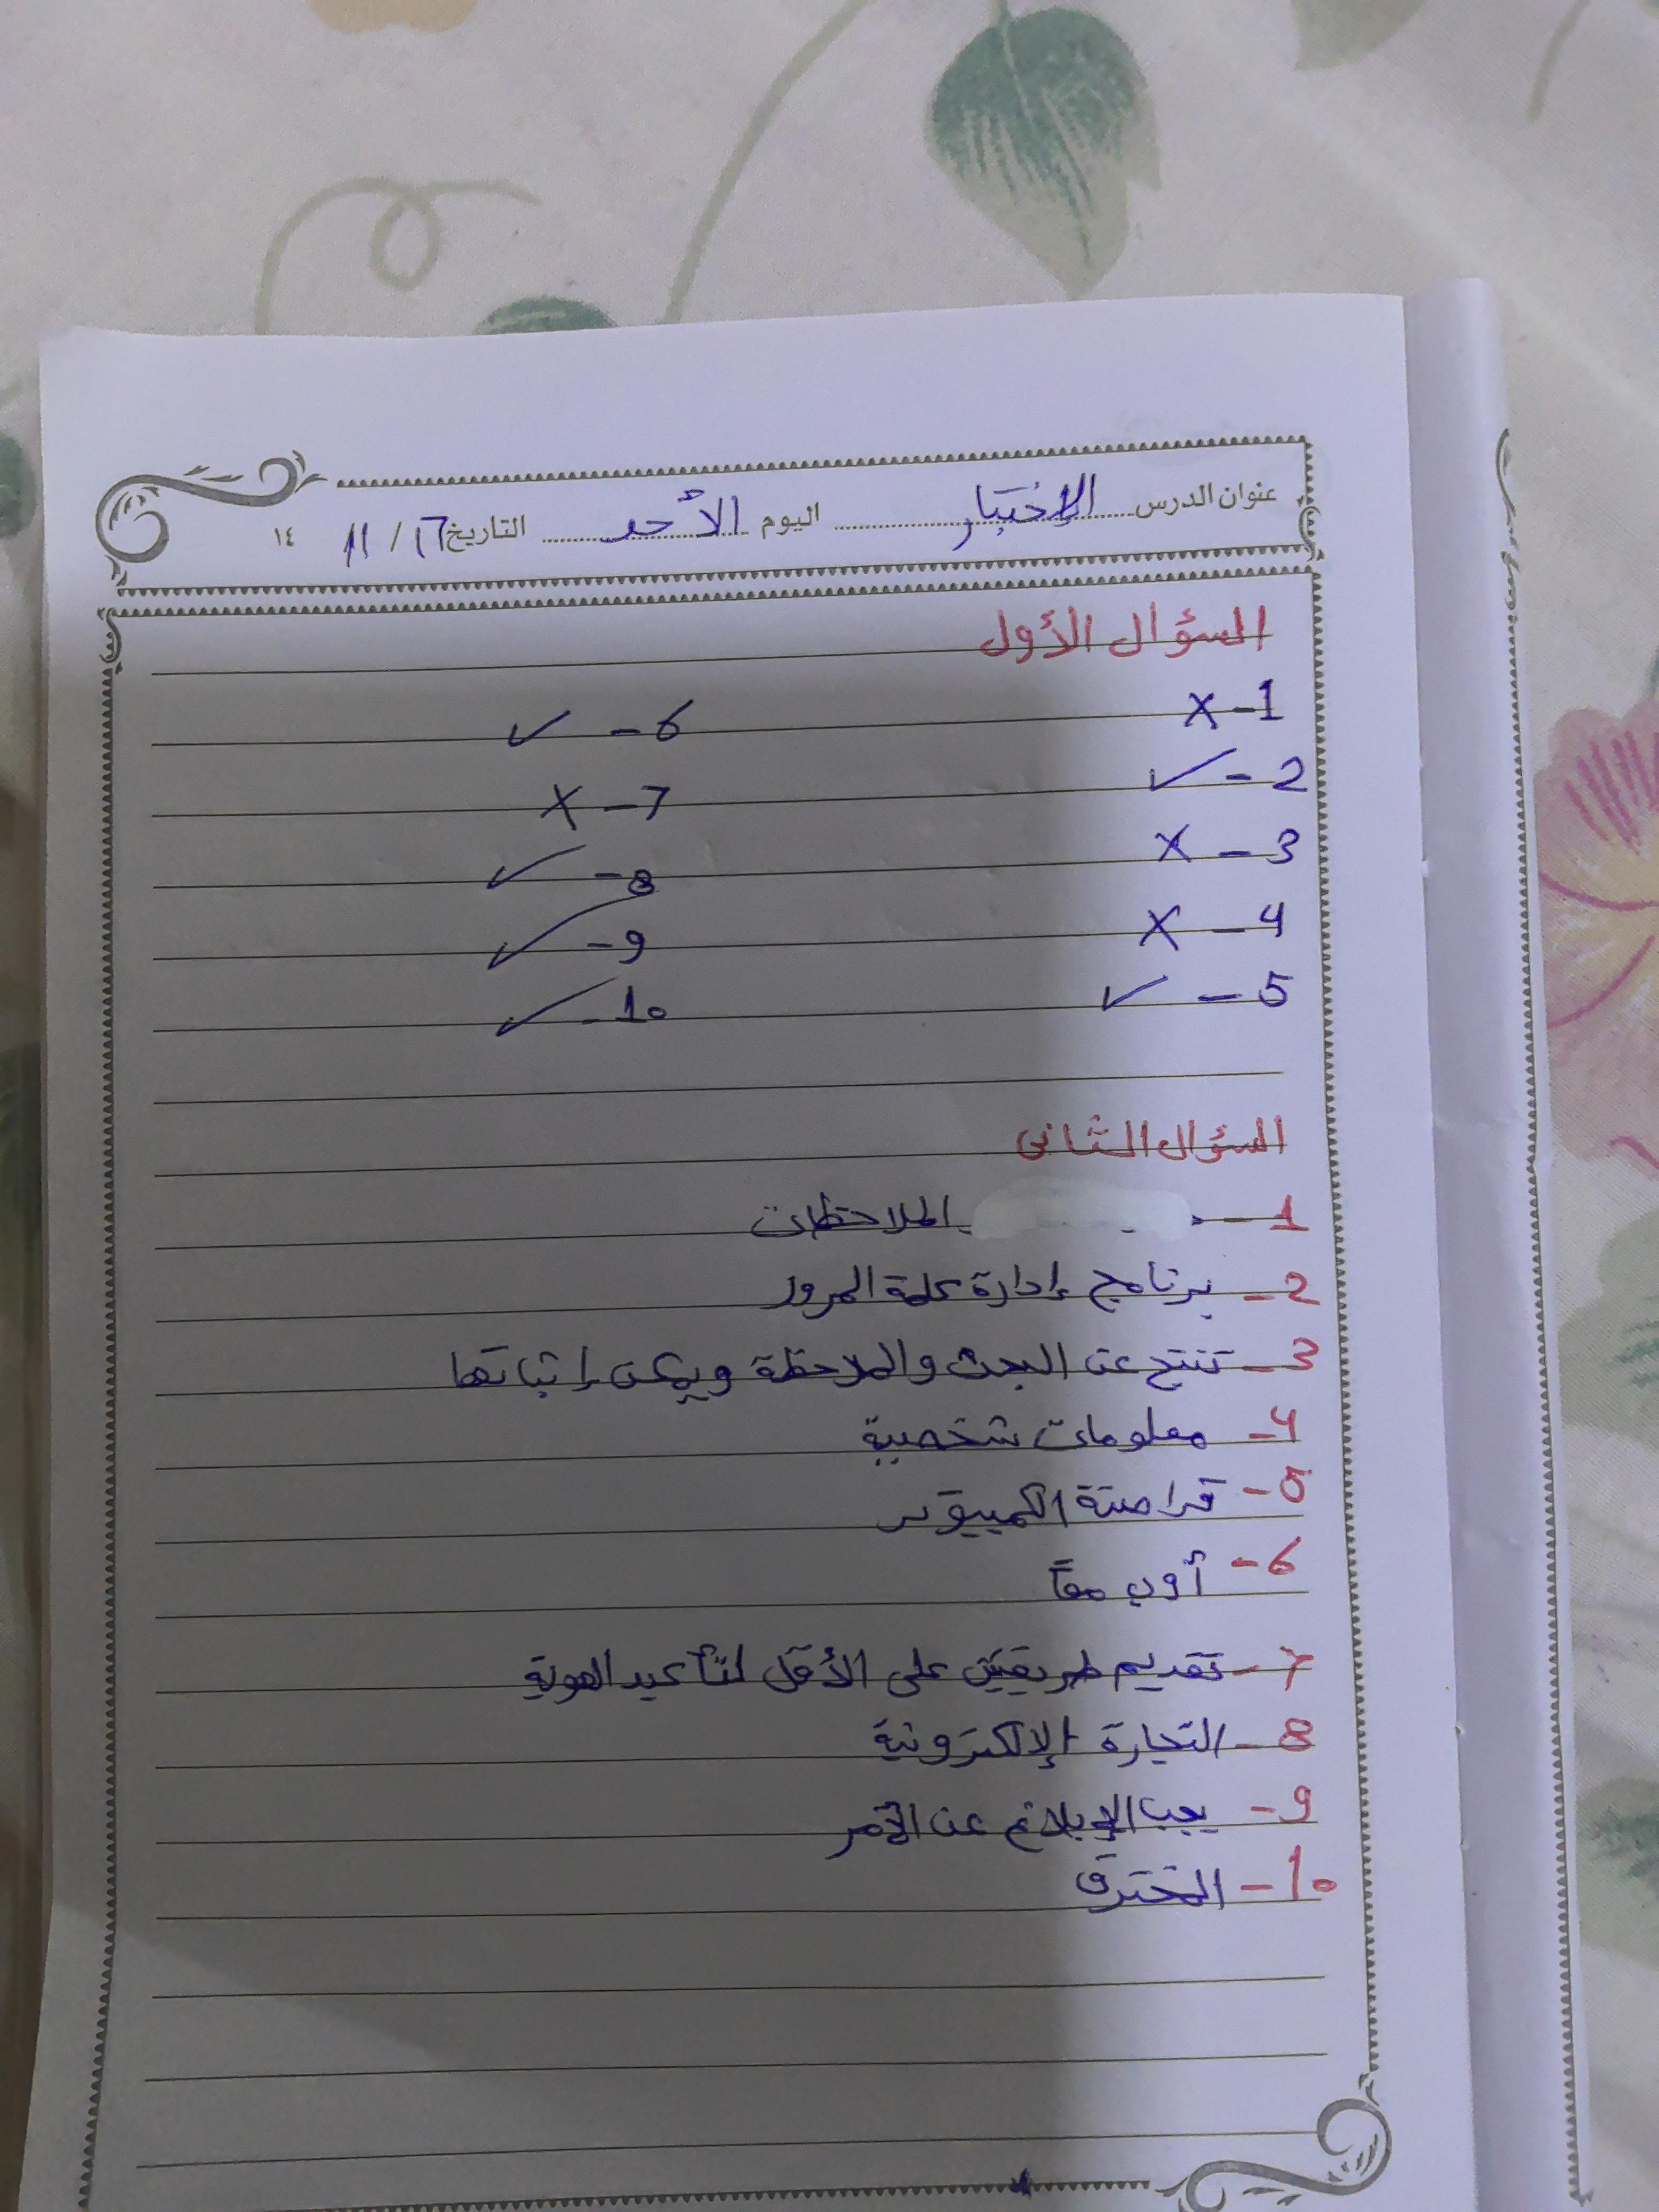 عنوان الدرس الإختبار اليوم الأحد التاريخ ١٦ / ١١ ١٤
السؤال الأول
1- X 6- ✓
2- ✓ 7- X
3- X 8- ✓
4- X 9- ✓
5- ✓ 10- ✓
السؤال الثانى
1- الملاحظات
2- برنامج إدارة كلمة المرور
3- تنتج عن البحث والملاحظة ويمكن إثباتها
4- معلومات شخصية
5- قراصنة الكمبيوتر
6- أ و ب معًا
7- تقديم طريقتين على الأقل لتأكيد الهوية
8- التجارة الإلكترونية
9- يجب الإبلاغ عن الأمر
10- المخترق